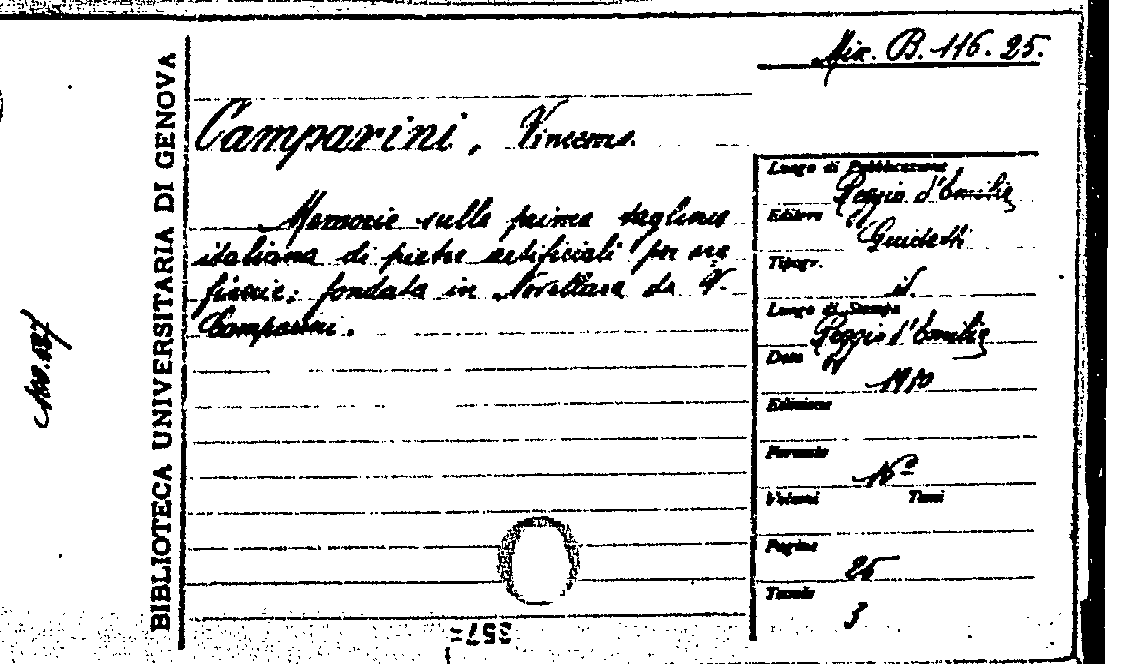 Mix. B. 116. 25.
Camparini, Vincenzo.
Memorie sulla prima taglieria
italiana di pietre artificiali per raf
finerie; fondata in Novellara da V.
Camparini.
Luogo di Pubblicazione
Reggio d'Emilia
Editore
Guidetti
Tipogr.
id.
Luogo di Stampa
Reggio d'Emilia
Data
1910
Edizione
Formato
16º
Volumi Tomi
Pagine
25
Tavole
3
BIBLIOTECA UNIVERSITARIA DI GENOVA